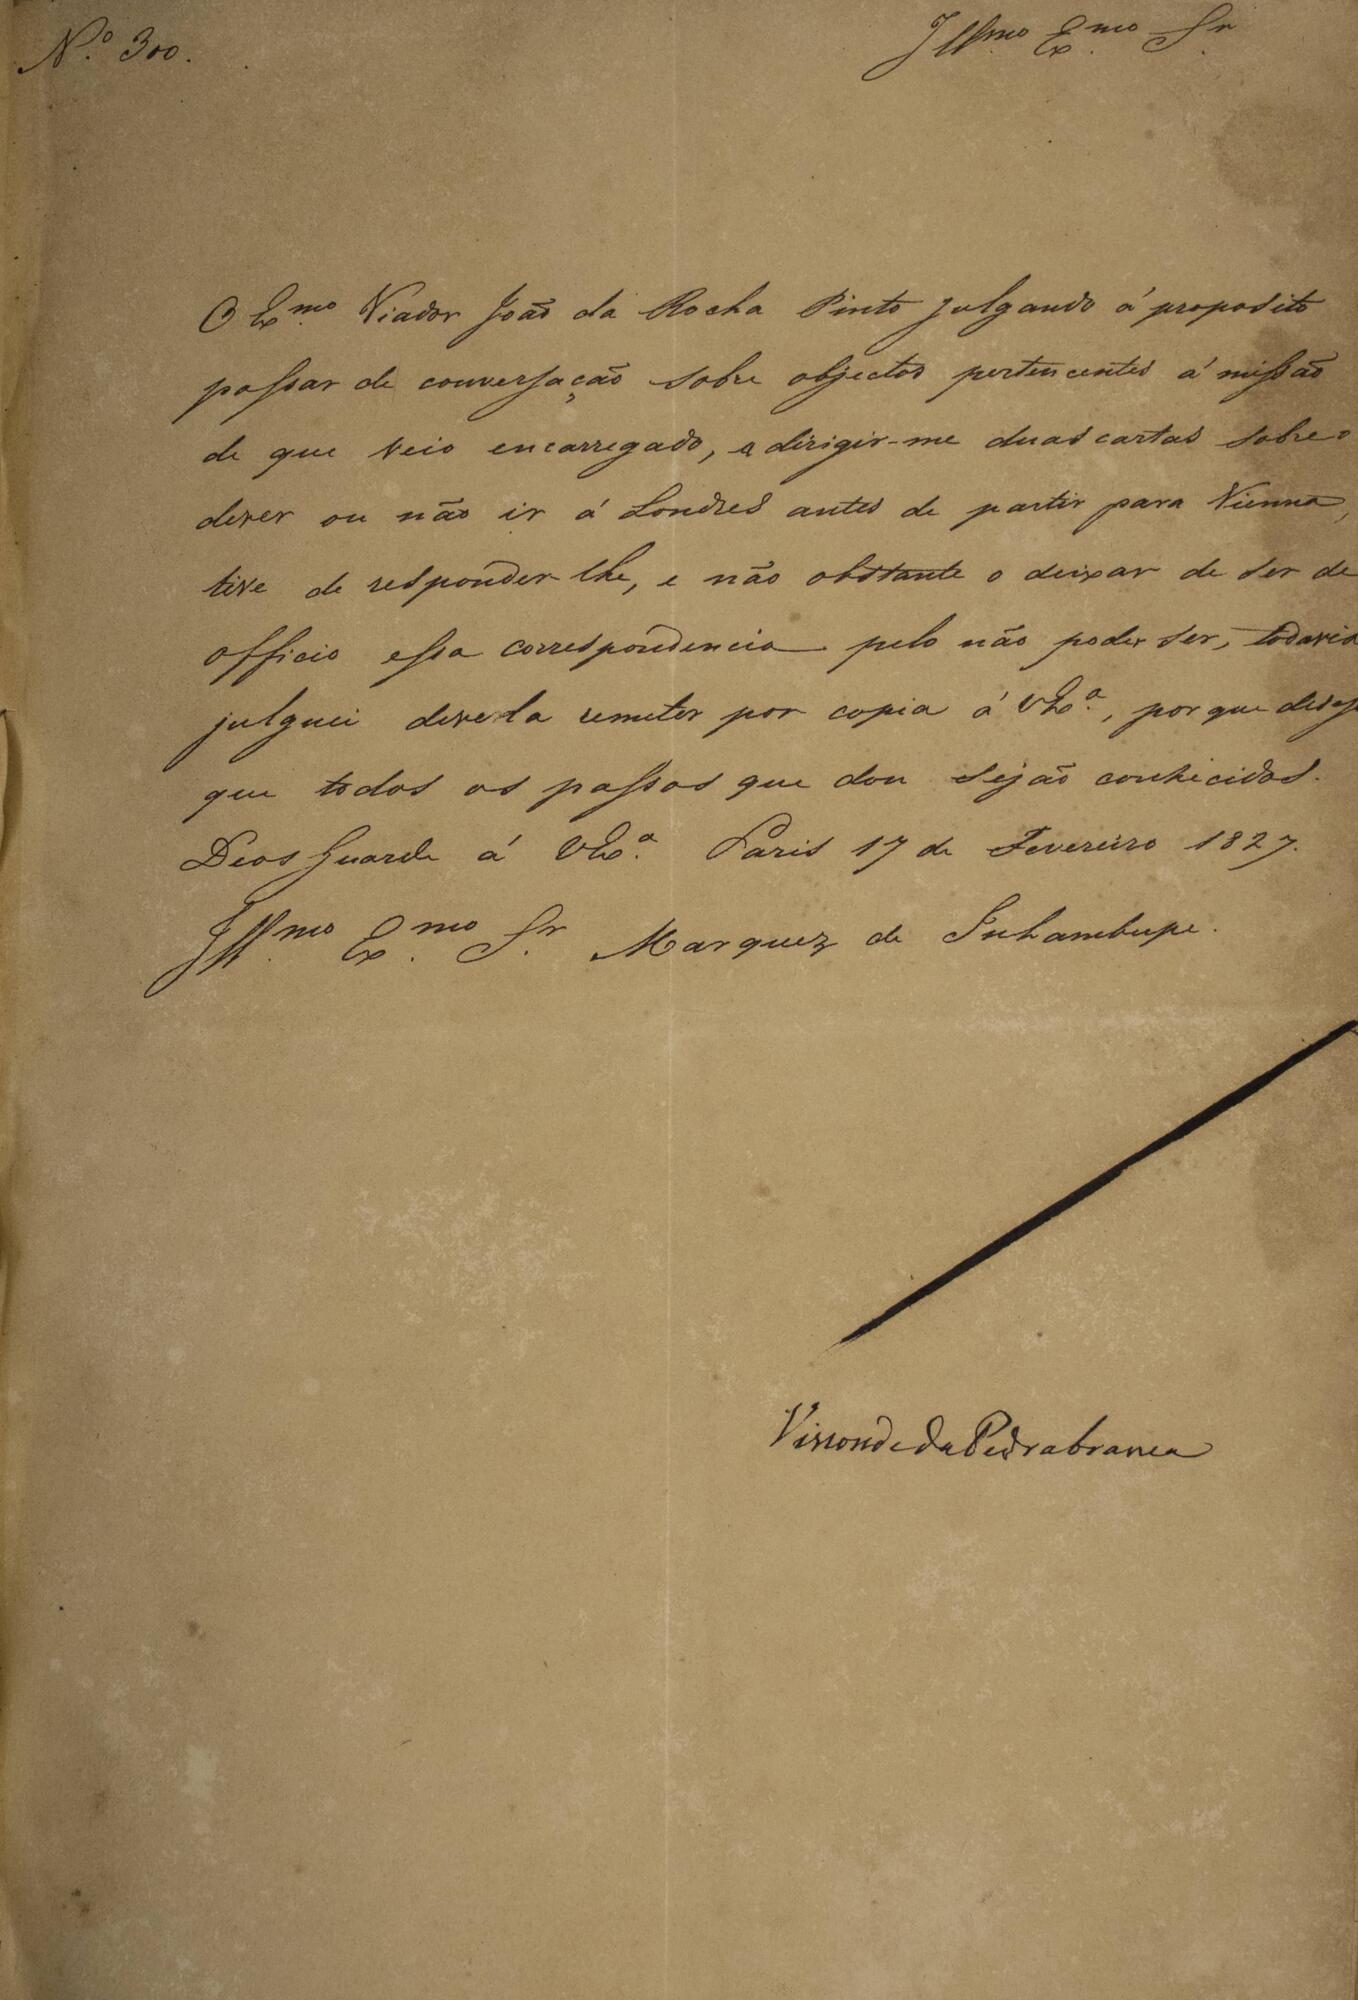 N.º 300.
Ill.mo Ex.mo Sr.
O Ex.mo Viador João da Rocha Pinto julgando á proposito
passar de conversação sobre objectos pertencentes á missão
de que veio encarregado, a dirigir-me duas cartas sobre o
dever ou não ir á Londres antes de partir para Vienna,
tive de responder-lhe, e não obstante o deixar de ser de
officio essa correspondencia pelo não poder ser, todavia
julguei devella remeter por copia á VEx.ª, porque desejo
que todos os passos que dou sejão conhecidos.
Deos Guarde á VEx.ª Paris 17 de Fevereiro 1827.
Ill.mo Ex.mo Sr. Marquez de Inhambupe.
Visconde da Pedra branca